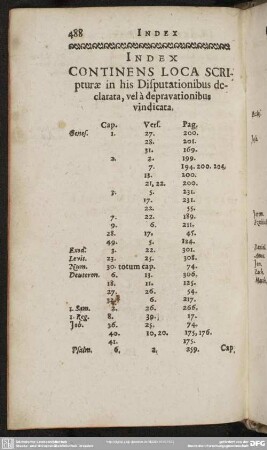 488 INDEX
INDEX
CONTINENS LOCA SCRI-
pturæ in his Disputationibus de-
clarata, vel à depravationibus
vindicata.
Cap. Vers. Pag.
Genes. 1. 27. 200.
28. 201.
31. 169.
2. 2. 199.
7. 194. 200. 204.
15. 200.
21, 22. 200.
3. 5. 231.
17. 231.
22. 55.
7. 22. 189.
9. 6. 211.
28. 17. 45.
49. 5. 124.
Exod. 3. 22. 301.
Levit. 23. 25. 308.
Num. 30. totum cap. 74.
Deuteron. 6. 13. 306.
18. 11. 125.
27. 26. 54.
6. 217.
1. Sam. 2. 26. 266.
1. Reg. 8. 39. 17.
Job. 36. 25. 74.
40. 10, 20. 175, 176.
41. 175.
Psalm. 6. 2. 259. Cap